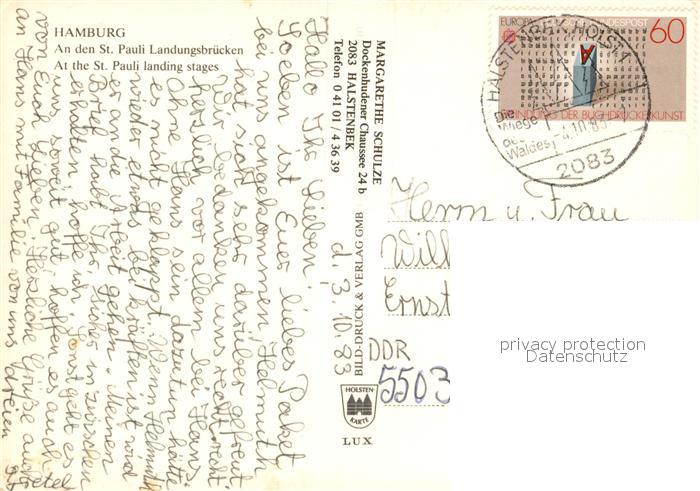 HAMBURG
An den St. Pauli Landungsbrücken
At the St. Pauli landing stages
MARGARETHE SCHULZE
Dockenhudener Chaussee 24 b
2083 HALSTENBEK
Telefon 0 41 01 / 4 36 39
d. 3. 10. 83
Halo Ihr Lieben!
Soeben ist Euer liebes Paket
bei uns angekommen, Helmuth
hat, sich sehr darüber gefreut.
Wir bedanken uns recht
herzlich vor allem bei Hans.
Ohne Hans sein dazutun hätte
es nicht geklappt. Wenn Helmuth
wieder etwas bei kräften ist wird
er an die Arbeit gehen. Meinen
Brief habt Ihr sicher inzwischen
erhalten hoffe ich. Sonst geht es
uns soweit gut, hoffen es auch
von Euch Lieben. Herzliche Grüße auch
an Hans mit Familie von uns dreien
BILD-DRUCK & VERLAG GMBH
HOLSTEN-
KARTE
LUX
EUROPA DEUTSCHE BUNDESPOST
60
ERFINDUNG DER BUCHDRUCKERKUNST
HALSTENBEK, HOLST 1
Die
Wiege
des
Waldes
-4.10.83
2083
Herrn u. Frau
Will
Ernst
DDR
5503
privacy protection
Datenschutz